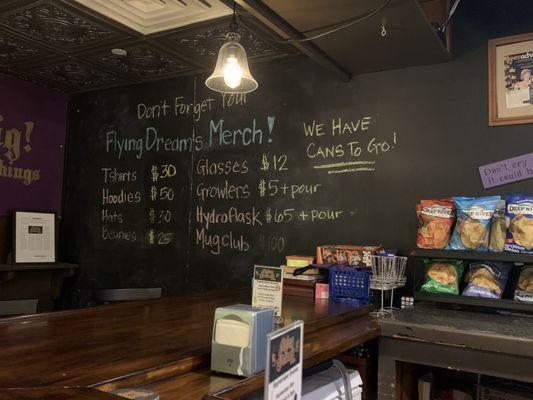 Don't Forget Your
Flying Dreams Merch!
Tshirts $30
Hoodies $50
Hats $30
Beanies $25
Glasses $12
Growlers $5 + pour
Hydroflask $65 + pour
Mug Club $100
We Have
Cans To Go!
ig!
hings
Don't cry
it could h
Deep River
Deep River
Deep River